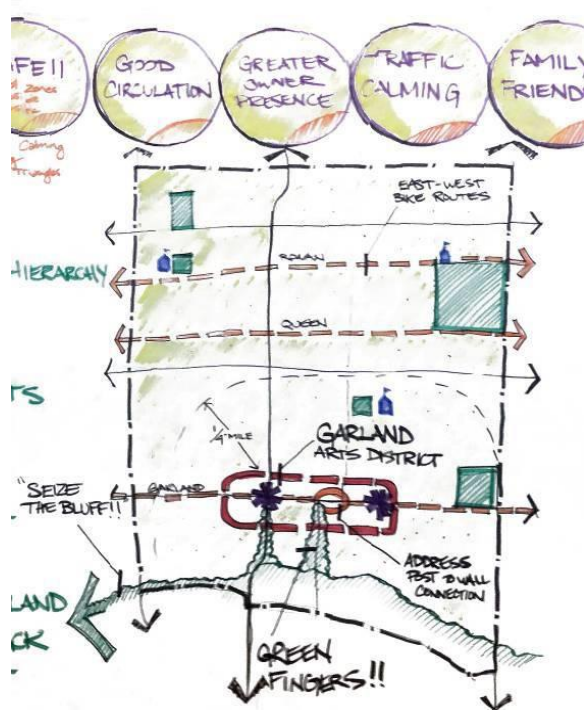 FE!!
Zones
Calming
Triangles
GOOD
CIRCULATION
GREATER
OWNER
PRESENCE
TRAFFIC
CALMING
FAMILY
FRIEND
EAST-WEST
BIKE ROUTES
HIERARCHY
ROWAN
QUEEN
TS
1/4 MILE
GARLAND
ARTS DISTRICT
"SEIZE
THE BLUFF!!
GARLAND
ADDRESS
POST TO WALL
CONNECTION
LAND
CK
GREEN
FINGERS!!